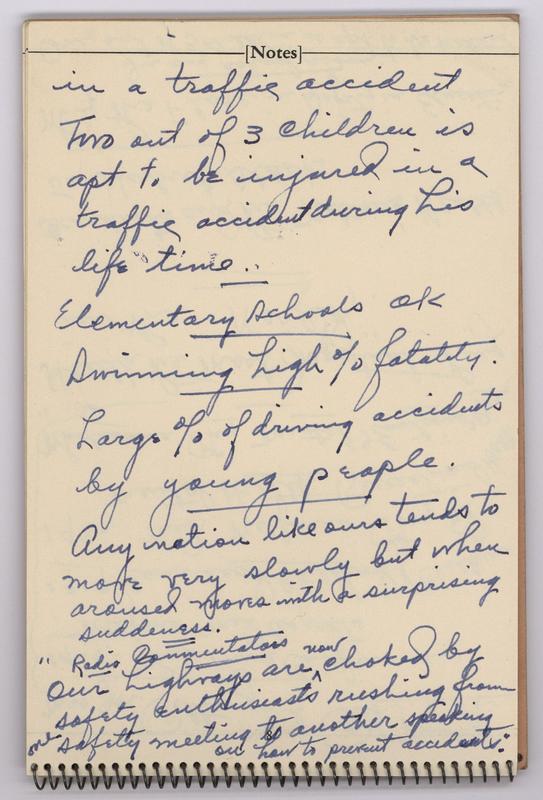 [Notes]
in a traffic accident
Two out of 3 children is
apt to be injured in a
traffic accident during his
life time..
Elementary Schools OK
Swimming high % fatality.
Large % of driving accidents
by young people.
Any nation like ours tends to
move very slowly but when
aroused moves with a surprising
suddeness.
" Radio Commentators
Our highways are now choked by
safety enthusiasts rushing from
one safety meeting to another speaking
on how to prevent accidents."